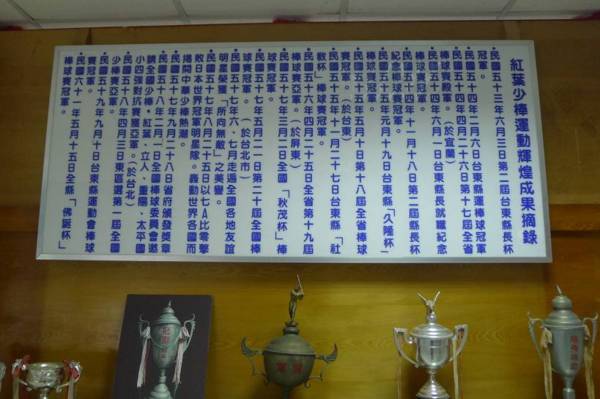 紅葉少棒運動輝煌成果摘錄
•民國五十三年六月三日第二屆台東縣縣長杯
冠軍。
•民國五十四年二月六日台東縣運棒球冠軍
•民國五十四年四月二十六日第十七屆全省
棒球賽殿軍。(於宜蘭)
•民國五十四年六月一日台東縣長就職紀念
棒球賽冠軍。
•民國五十四年十一月十八日第二屆縣長杯
紀念棒球錦標賽冠軍。
•民國五十五年元月十九日台東縣「久隆杯」
棒球賽冠軍。
•民國五十五年五月十日第十八屆全省棒球
賽冠軍。(於台東)
•民國五十五年十一月二十七日台東縣「社
救杯」棒球賽冠軍。
•民國五十六年四月二十五日全省第十九屆
棒球賽亞軍。(於屏東)
•民國五十七年三月二日全國「秋茂杯」棒
球賽冠軍。
•民國五十七年五月二十一日第二十屆全國棒
球賽冠軍。(於台北市)
•民國五十七年六、七月走遍全國各地友誼
賽榮獲「所向無敵」之美譽。
•民國五十七年八月二十五日以七A比零擊
敗日本世界冠軍明星隊。轟動世界各國而
揭開中華少棒熱潮。
•民國五十七年九月二十八日省府頒發獎章
•民國五十八年二月一日全國棒球委員會邀
請全國少棒。紅葉、立人、重陽、太平國
小四強對抗賽冠亞軍。(於台北)
•民國五十八年四月三日東區選第一屆全國
少棒賽亞軍。
•民國五十九年九月十日台東縣運動會棒球
賽冠軍。
•民國六十一年五月十五日全縣「佛誕杯」
棒球賽冠軍。